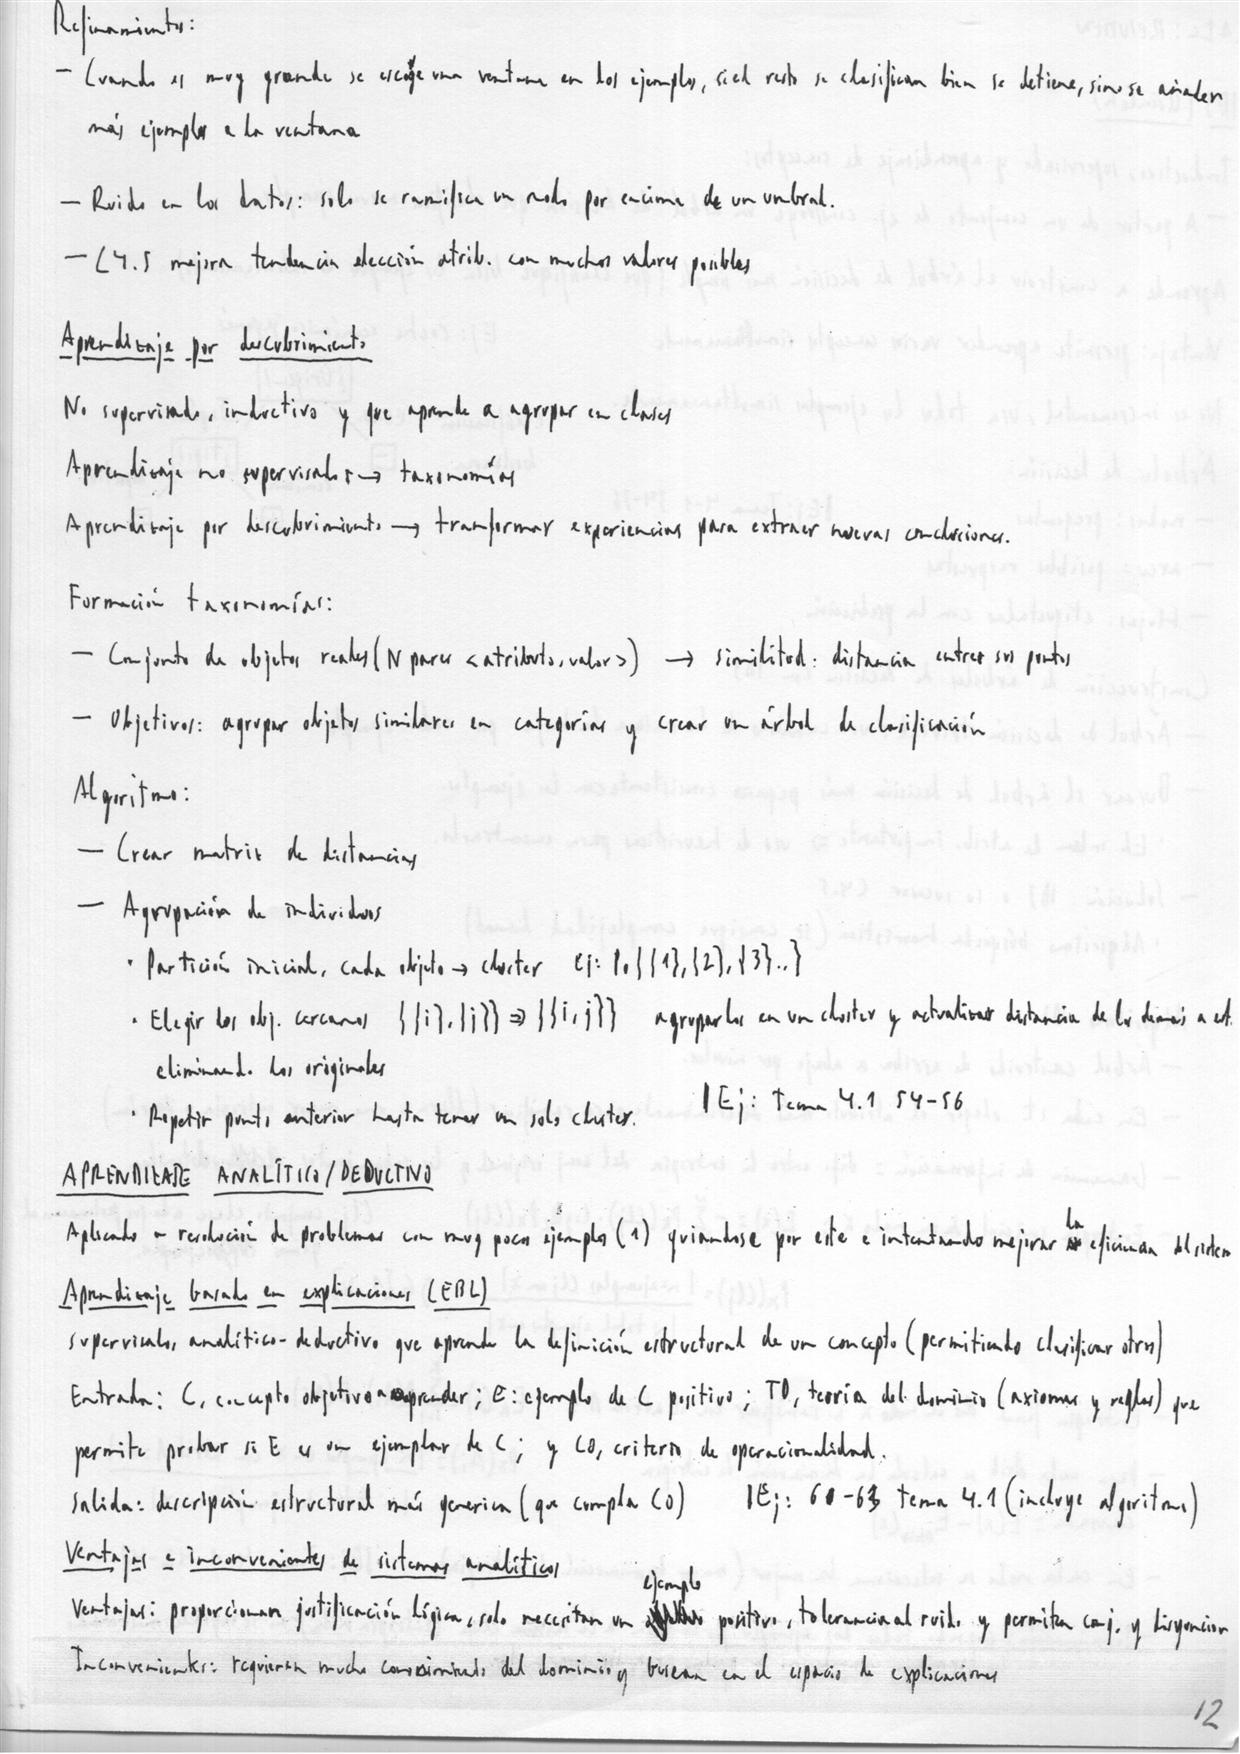 Refinamientos:
- Cuando es muy grande se escoge una ventana en los ejemplos, si el resto se clasifican bien se detiene, sino se añaden
más ejemplos a la ventana
- Ruido en los datos: solo se ramifica un nodo por encima de un umbral.
- C4.5 mejora tendencia elección atrib. con muchos valores posibles
Aprendizaje por descubrimiento
No supervisado, inductivo y que aprende a agrupar en clases
Aprendizaje no supervisado: → taxonomías
Aprendizaje por descubrimiento → transformar experiencias para extraer nuevas conclusiones.
Formación taxonomías:
- Conjunto de objetos reales (N pares <atributo, valor>) → similitud: distancia entre sus puntos
- Objetivos: agrupar objetos similares en categorías y crear un árbol de clasificación
Algoritmo:
- Crear matriz de distancias
- Agrupación de individuos
· Partición inicial, cada objeto → cluster ej: P₀{{1},{2},{3}..}
· Elegir los obj. cercanos {{i},{j}} ⇒ {{i,j}} agruparlos en un cluster y actualizar distancia de los demás a est.
eliminando los originales
· Repetir punto anterior hasta tener un solo cluster. | Ej: Tema 4.1 54-56
APRENDIZAJE ANALÍTICO/DEDUCTIVO
Aplicado a resolución de problemas con muy pocos ejemplos (1) guiandose por este e intentando mejorar la eficiencia del sistem
Aprendizaje basado en explicaciones (EBL)
supervisado, analítico-deductivo que aprende la definición estructural de un concepto (permitiendo clasificar otros)
Entrada: C, concepto objetivo a aprender; E: ejemplo de C positivo; TD, teoría del dominio (axiomas y reglas) que
permite probar si E es un ejemplar de C; y CO, criterio de operacionalidad.
Salida: descripción estructural más generica (que cumpla CO) | Ej: 60-63 tema 4.1 (incluye algoritmo)
Ventajas e inconvenientes de sistemas analíticos
Ventajas: proporcionan justificación lógica, solo necesitan un ejemplo positivo, tolerancia al ruido y permiten conj. y disyuncion
Inconvenientes: requieren mucho del dominio y buscan en el espacio de explicaciones
12